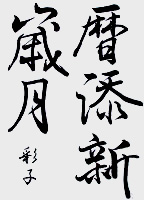 暦添新
歳月
彩子